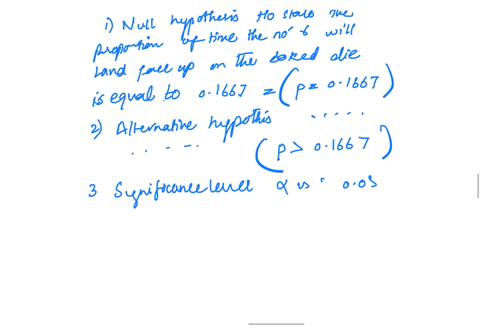 1) Null hypothesis Ho states the
proportion of time the no' 6 will
land face up on the baked die
is equal to 0.1667 = (p = 0.1667)
2) Alternative hypothis .....
..... (p > 0.1667)
3 Significance level α is 0.05